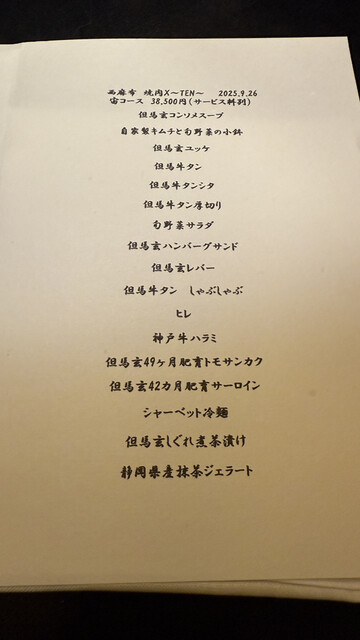 西麻布 焼肉X〜TEN〜 2025.9.26
宙コース 38,500円(サービス料別)
但馬玄コンソメスープ
自家製キムチと旬野菜の小鉢
但馬玄ユッケ
但馬牛タン
但馬牛タンシタ
但馬牛タン厚切り
旬野菜サラダ
但馬玄ハンバーグサンド
但馬玄レバー
但馬牛タン しゃぶしゃぶ
ヒレ
神戸牛ハラミ
但馬玄49ヶ月肥育トモサンカク
但馬玄42カ月肥育サーロイン
シャーベット冷麺
但馬玄しぐれ煮茶漬け
静岡県産抹茶ジェラート